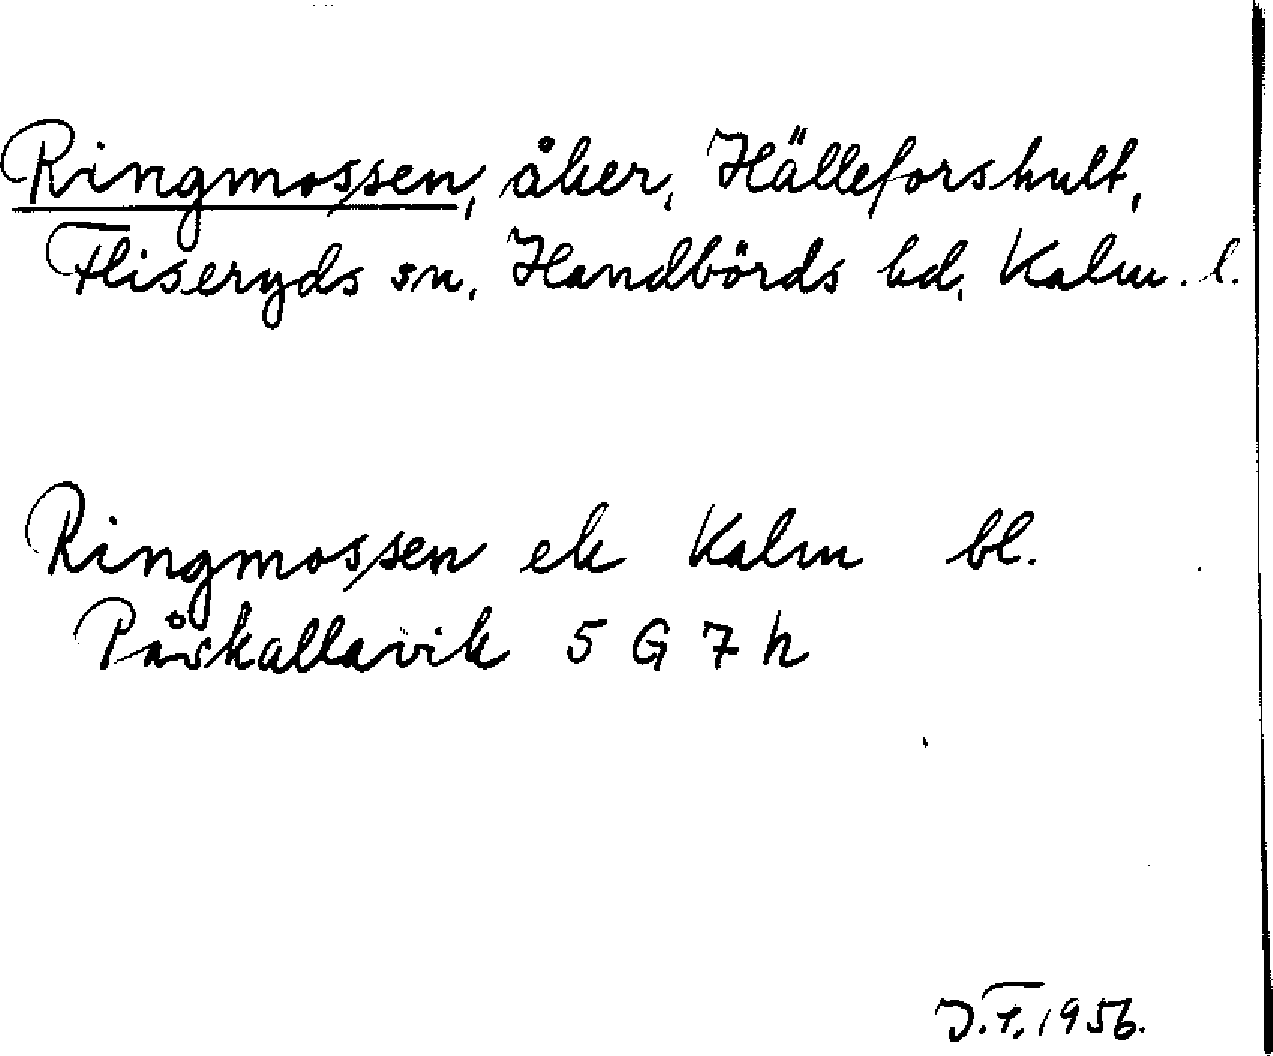 Ringmossen, åker, Hälleforshult,
Fliseryds sn, Handbörds hd, Kalm. l.
Ringmossen ek Kalm bl.
Påskallavik 5 G 7 h
J.F. 1956.